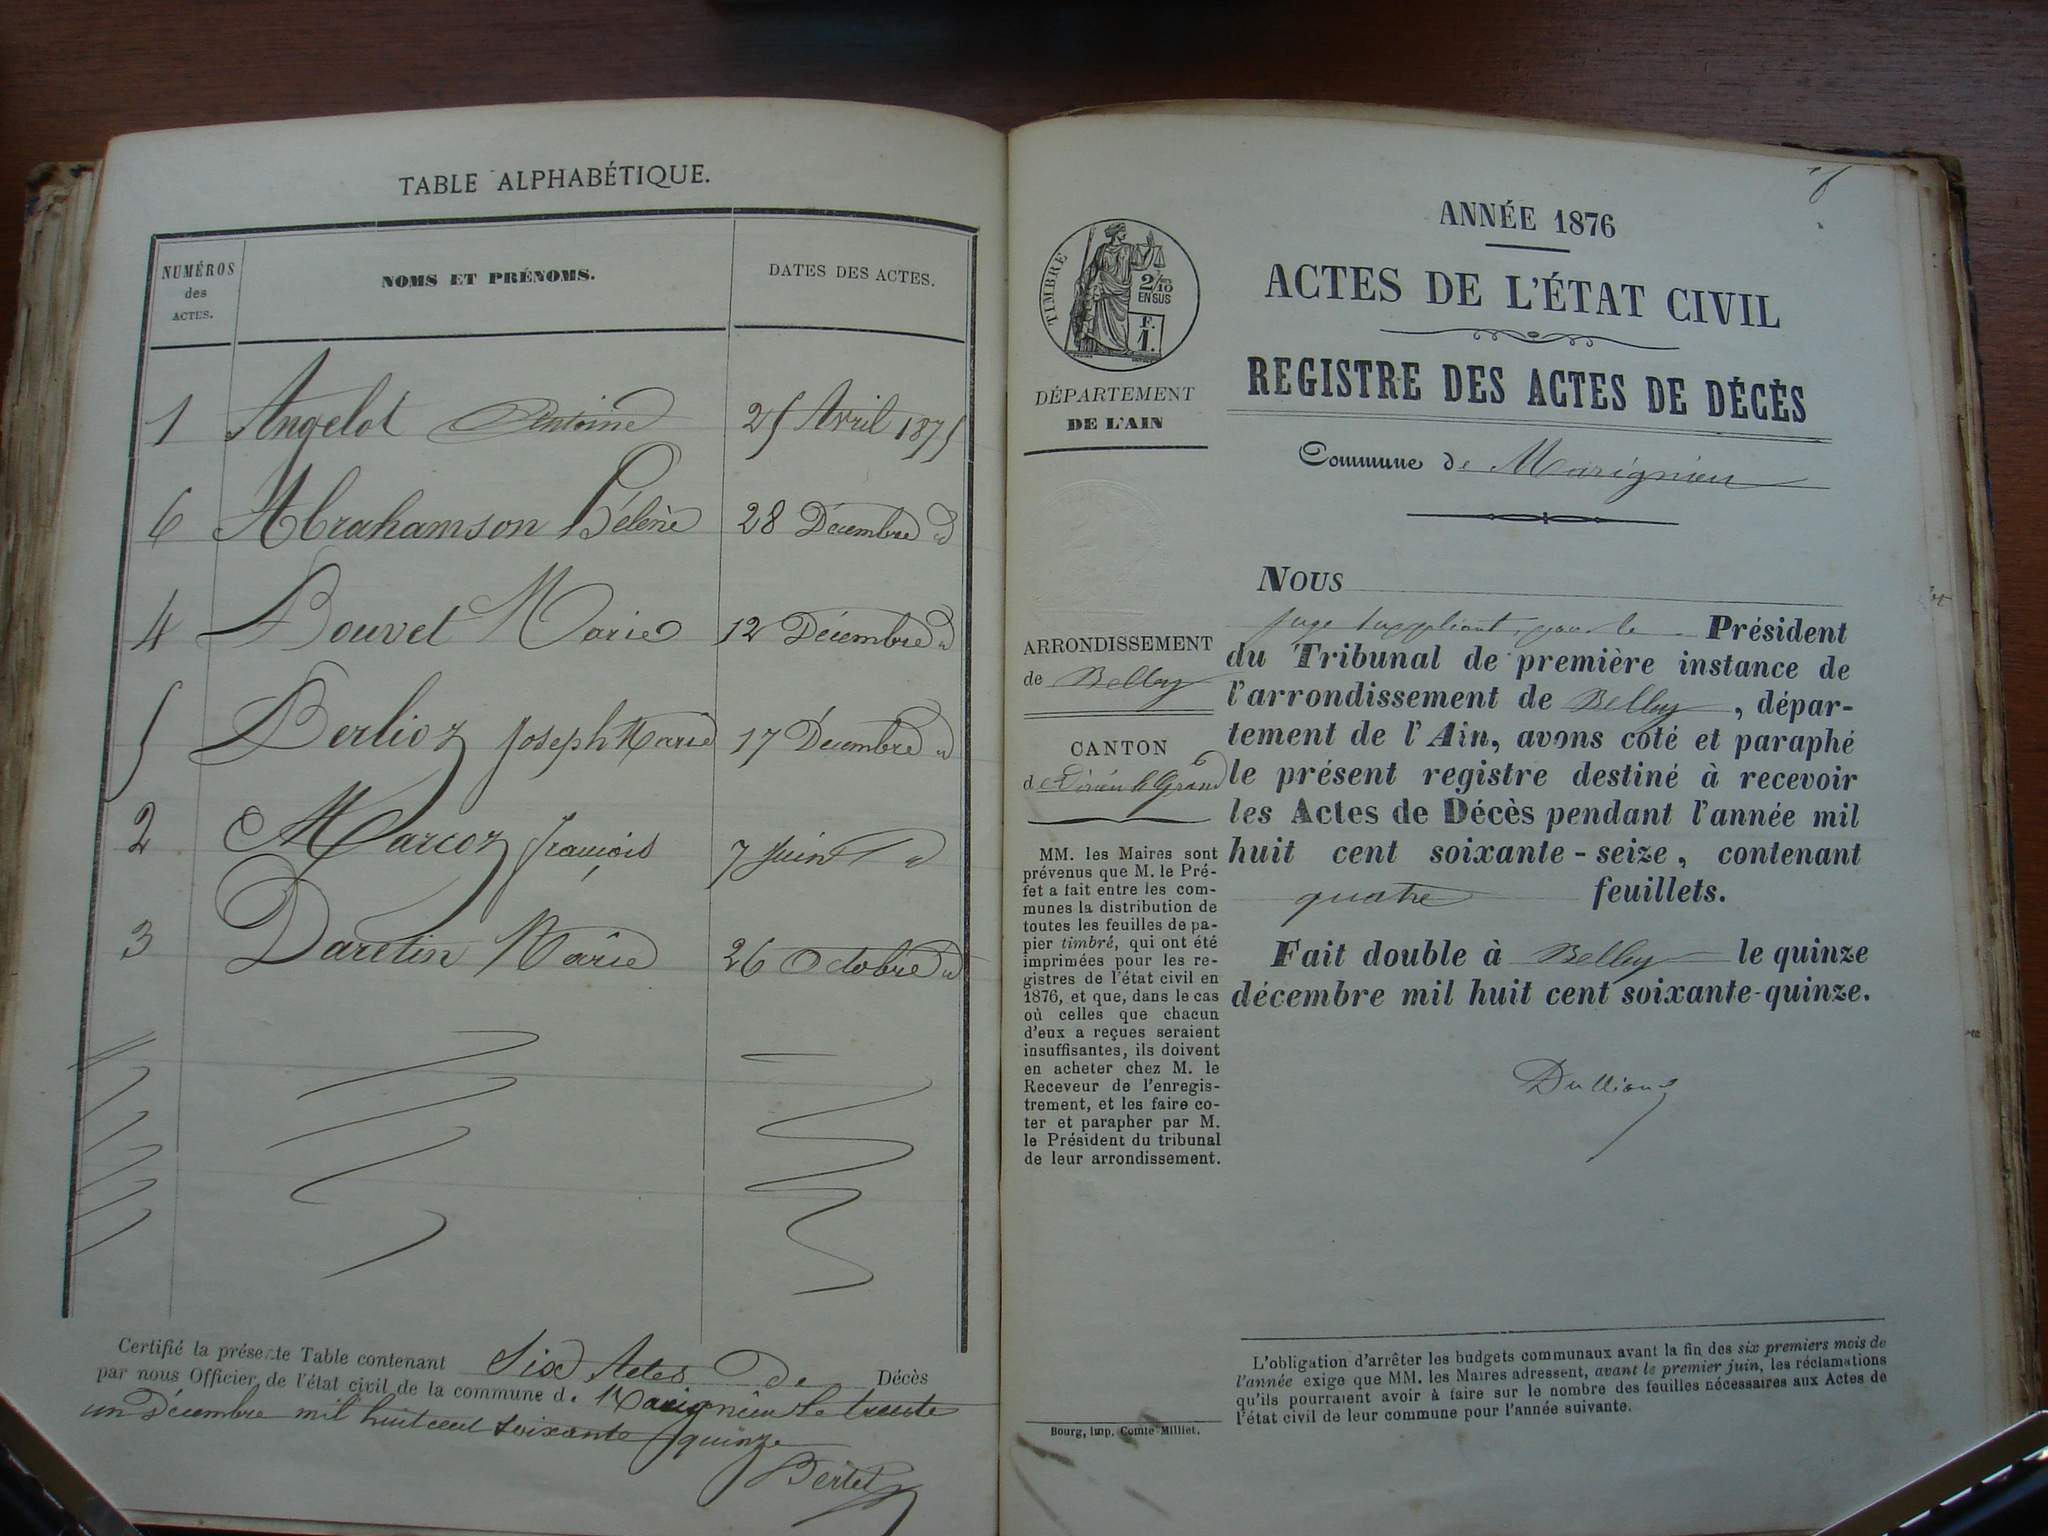 TABLE ALPHABÉTIQUE.
NUMÉROS des ACTES. NOMS ET PRÉNOMS. DATES DES ACTES.
1 Angelot Antoine 25 Avril 1875
6 Abrahamson Hélène 28 Décembre d
4 Bouvet Marie 12 Décembre d
5 Berlioz Joseph Marie 17 Décembre d
2 Marcoz François 7 Juin d
3 Daretin Marie 26 Octobre d
Certifié la présente Table contenant Six Actes De Décès
par nous Officier de l'état civil de la commune d. Marignieu le trente
un Décembre mil huit cent soixante quinze
Bertet
ANNÉE 1876
ACTES DE L'ÉTAT CIVIL
REGISTRE DES ACTES DE DÉCÈS
Commune de Marignieu
TIMBRE
2/10
EN SUS
F.
1.
DÉPARTEMENT
DE L'AIN
ARRONDISSEMENT
de Belley
CANTON
de Virieu le Grand
MM. les Maires sont
prévenus que M. le Pré-
fet a fait entre les com-
munes la distribution de
toutes les feuilles de pa-
pier timbré, qui ont été
imprimées pour les re-
gistres de l'état civil en
1876, et que, dans le cas
où celles que chacun
d'eux a reçues seraient
insuffisantes, ils doivent
en acheter chez M. le
Receveur de l'enregis-
trement, et les faire co-
ter et parapher par M.
le Président du tribunal
de leur arrondissement.
Bourg, imp. Comte-Milliet.
NOUS
juge suppléant, pour le Président
du Tribunal de première instance de
l'arrondissement de Belley, dépar-
tement de l'Ain, avons coté et paraphé
le présent registre destiné à recevoir
les Actes de Décès pendant l'année mil
huit cent soixante-seize, contenant
quatre feuillets.
Fait double à Belley le quinze
décembre mil huit cent soixante-quinze.
L'obligation d'arrêter les budgets communaux avant la fin des six premiers mois de
l'année exige que MM. les Maires adressent, avant le premier juin, les réclamations
qu'ils pourraient avoir à faire sur le nombre des feuilles nécessaires aux Actes de
l'état civil de leur commune pour l'année suivante.